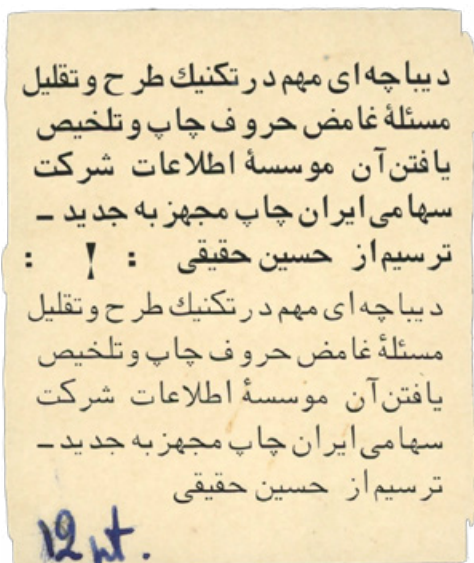 دیباچه‌ای مهم در تکنیك طرح و تقلیل
مسئلۀ غامض حروف چاپ و تلخیص
یافتن آن موسسۀ اطلاعات شرکت
سهامی ایران چاپ مجهز به جدید ـ
ترسیم از حسین حقیقی : ! :
دیباچه‌ای مهم در تکنیك طرح و تقلیل
مسئلۀ غامض حروف چاپ و تلخیص
یافتن آن موسسۀ اطلاعات شرکت
سهامی ایران چاپ مجهز به جدید ـ
ترسیم از حسین حقیقی
12 pt.